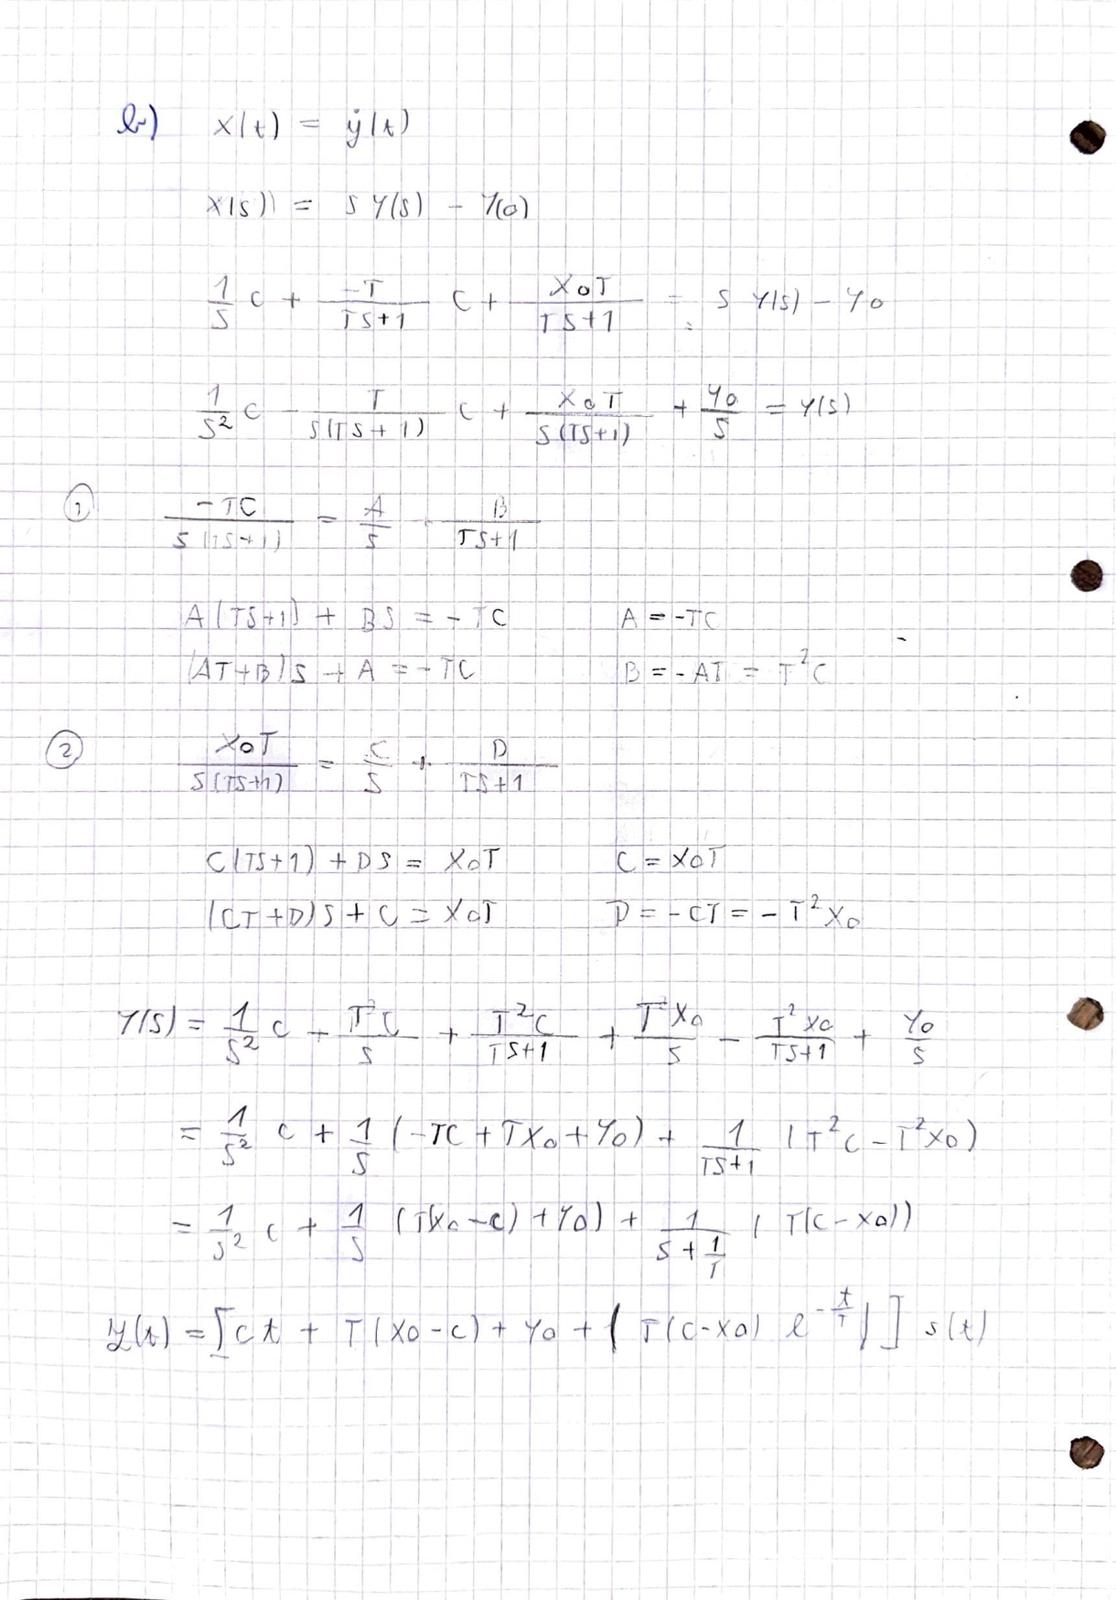 b) x(t) = ẏ(t)
X(s)) = s Y(s) - Y(0)
1/s C + -T/(Ts+1) C + X0T/(Ts+1) = s Y(s) - Y0
1/s² C - T/(s(Ts+1)) C + X0T/(s(Ts+1)) + Y0/s = Y(s)
① -TC/(s(Ts+1)) = A/s + B/(Ts+1)
A(Ts+1) + Bs = -TC A = -TC
(AT+B)s + A = -TC B = -AT = T²C
② X0T/(s(Ts+1)) = C/s + D/(Ts+1)
C(Ts+1) + Ds = X0T C = X0T
(CT+D)s + C = X0T D = -CT = -T²X0
Y(s) = 1/s² C - T²C/s + T²C/(Ts+1) + T²X0/s - T²X0/(Ts+1) + Y0/s
= 1/s² C + 1/s (-TC + TX0 + Y0) + 1/(Ts+1) (T²C - T²X0)
= 1/s² C + 1/s (T(X0-C) + Y0) + 1/(s+1/T) (T(C-X0))
y(t) = [Ct + T(X0-C) + Y0 + (T(C-X0) e^(-t/T))] s(t)